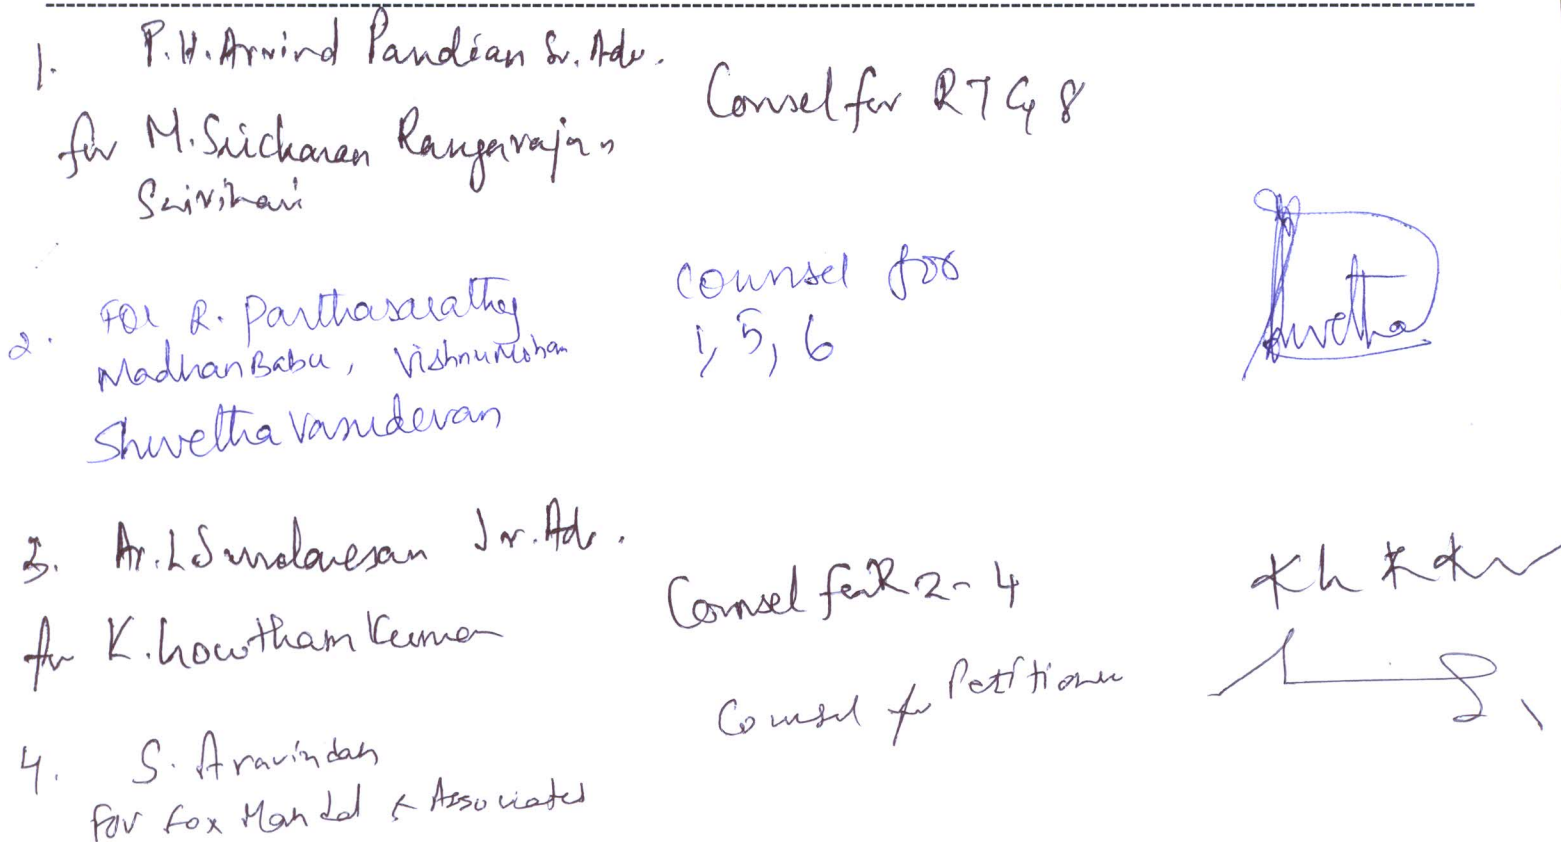 1. P.H. Arvind Pandian Sr. Adv.
for M. Sricharan Rangarajan
Counsel for R 7 & 8
Srivihari
2. FOR R. Parthasarathy
Madhan Babu, Vishnu Mohan
Shwetha Vasudevan
counsel for
1, 5, 6
Shwetha
3. AR. L Sundaresan Sr. Adv.
for K. Gowtham Kumar
Counsel for R 2-4
4. S. Aravindan
For Fox Mandal & Associates
Counsel for Petitioner